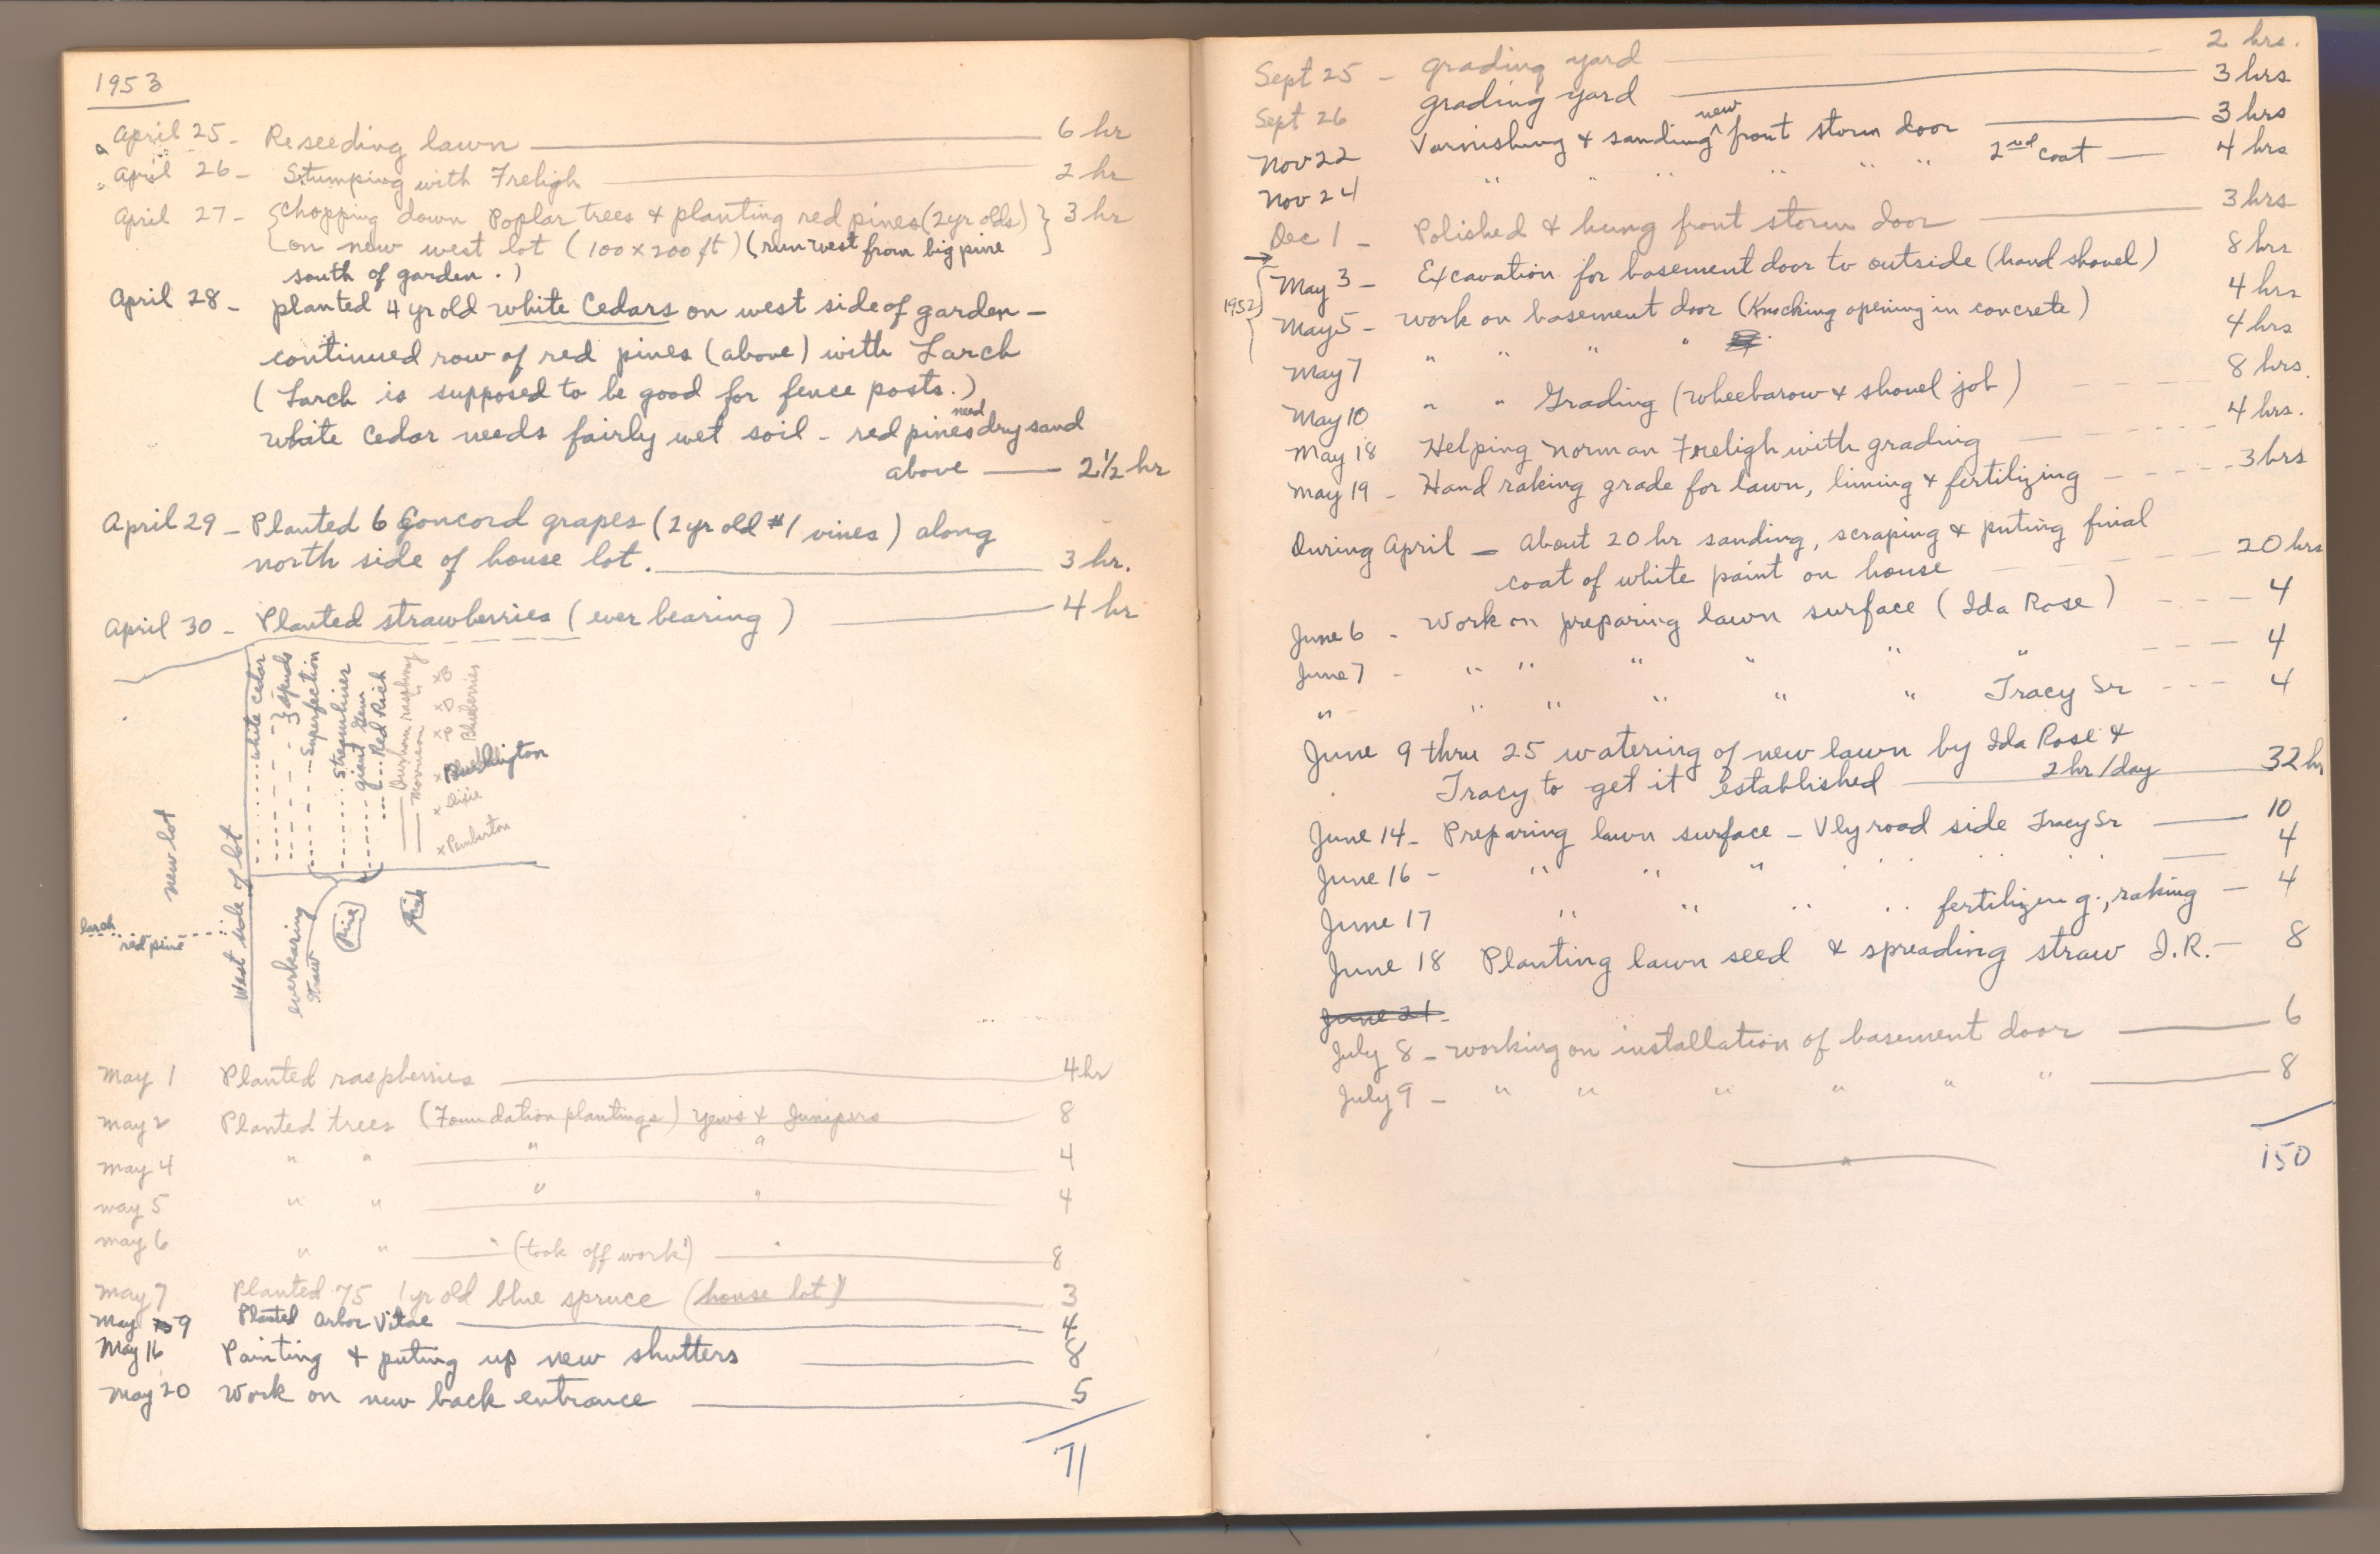 1953
April 25 - Reseeding lawn 6 hr
April 26 - Stumping with Freligh 2 hr
April 27 - {Chopping down Poplar trees & planting red pines (2yr olds)} 3 hr
on new west lot (100 x 200 ft) (run west from big pine
south of garden.)
April 28 - planted 4 yr old white Cedars on west side of garden -
continued row of red pines (above) with Larch
(Larch is supposed to be good for fence posts.)
white Cedar needs fairly wet soil - red pines need dry sand
above 2½ hr
April 29 - Planted 6 Concord grapes (2 yr old #1 vines) along
north side of house lot. 3 hr.
April 30 - Planted strawberries (ever bearing) 4 hr
white Cedar
Superfection
Streamliner
giant Gem
Red Rich
Durham raspberry
Morrison "
Blueberries
Burlington
x Dixie
x Pemberton
new lot
West side of lot
larch
red pine
everbearing
Straw
May 1 Planted raspberries 4 hr
May 2 Planted trees (Foundation plantings) yews & Junipers 8
May 4 " " " " 4
May 5 " " " " 4
May 6 " " " (took off work) " 8
May 7 Planted 75 1 yr old blue spruce (house lot) 3
May 9 Planted Arbor Vitae 4
May 16 Painting & puting up new shutters 8
May 20 Work on new back entrance 5
71
Sept 25 - grading yard 2 hrs.
Sept 26 grading yard 3 hrs
Nov 22 Varnishing & sanding new front storm door 3 hrs
Nov 24 " " " " " 2nd coat 4 hrs
Dec 1 - Polished & hung front storm door 3 hrs
1952 May 3 - Excavation for basement door to outside (hand shovel) 8 hrs
May 5 - work on basement door (Knocking opening in concrete) 4 hrs
May 7 " " " " 4 hrs
May 10 " " Grading (wheebarow & shovel job) 8 hrs.
May 18 Helping Norman Freligh with grading 4 hrs.
May 19 - Hand raking grade for lawn, liming & fertilizing 3 hrs
During April - About 20 hr sanding, scraping & puting final
coat of white paint on house 20 hrs
June 6 - Work on preparing lawn surface (Ida Rose) 4
June 7 - " " " " " " 4
" " " " " " Tracy Sr 4
June 9 thru 25 watering of new lawn by Ida Rose &
Tracy to get it established 2 hr/day 32 hr
June 14 - Preparing lawn surface - Vly road side Tracy Sr 10
June 16 - " " " " " " 4
June 17 " " " " fertilizing, raking - 4
June 18 Planting lawn seed & spreading straw I.R. - 8
June 21 -
July 8 - working on installation of basement door 6
July 9 - " " " " " " 8
150